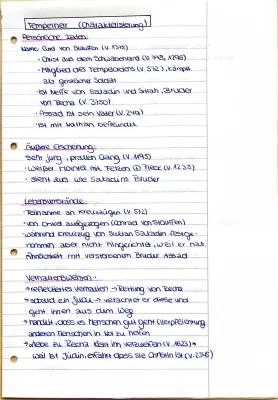 Tempelherr (Charakterisierung)
Persönliche Daten:
Name: Curd von Stauffen (V. 1375)
· Christ aus dem Schwabenland (V.
· Mitglied des Tempelordens (V. 572), kämpft
als geistlicher Soldat
· ist Neffe von Saladin und Sittah, Bruder
von Recha (V.
· Assad ist sein Vater (V.
· ist mit Nathan befreundet
Äußere Erscheinung:
· sehr jung, prallen Gang (V.
· Weißer Mantel mit
· sieht aus wie Saladins Bruder
Lebensumstände:
· Teilnahme an Kreuzzügen (V. 572)
· von Onkel aufgezogen (Conrad von Stauffen)
· während Kreuzzug von Sultan Saladin festge-
nommen, aber nicht hingerichtet, weil er hat
Ähnlichkeit mit verstorbenem Bruder Assad
Verhaltensweisen:
→ reflektiertes Verhalten → Rettung von Recha
→ sobald ein Jude → verachtet er diese und
geht ihnen aus dem Weg
→ handelt, dass es Menschen gut geht (Verpflichtung
anderen Menschen in Not zu helfen
→ Liebe zu Recha lässt ihn verzweifeln (V. 1623)
weil ist Jüdin, erfährt dass sie Christin ist (V. 2345)